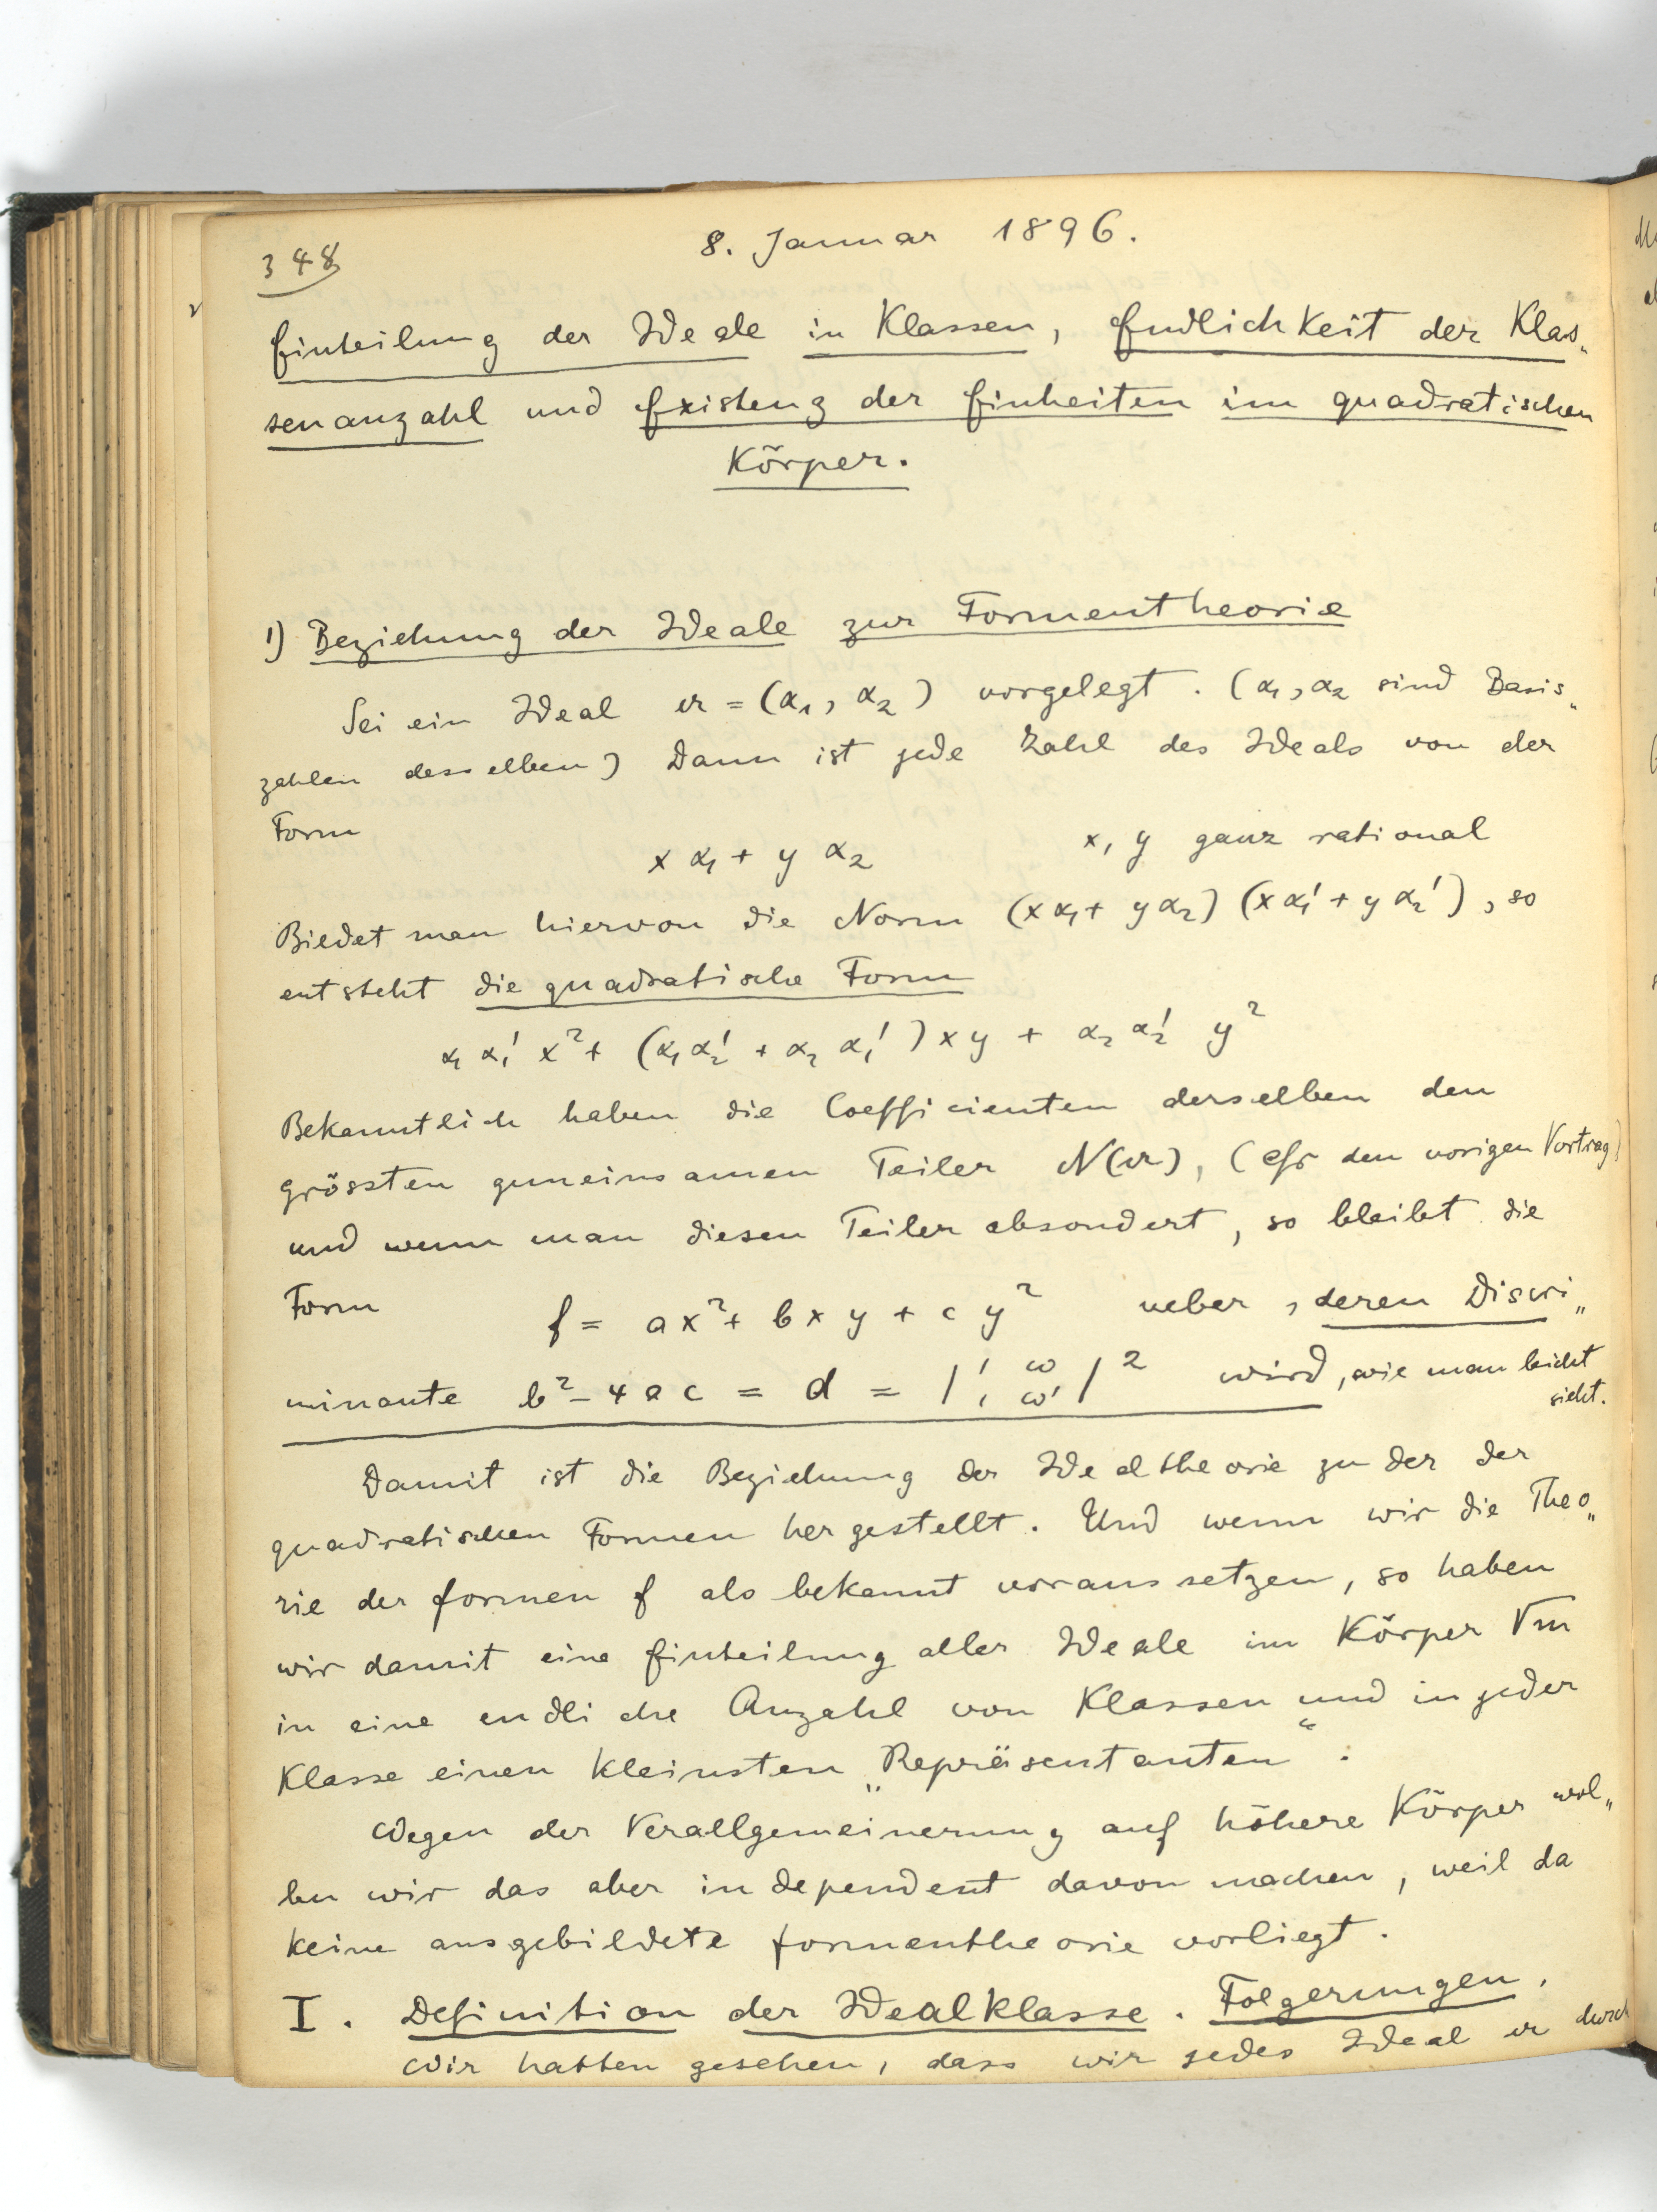 348
8. Januar 1896.
Einteilung der Ideale in Klassen, Endlichkeit der Klas„
senanzahl und Existenz der Einheiten im quadratischen
Körper.
1) Beziehung der Ideale zur Formentheorie
Sei ein Ideal 𝔞 = (α₁, α₂) vorgelegt. (α₁, α₂ sind Basis„
zahlen desselben) Dann ist jede Zahl des Ideals von der
Form
x α₁ + y α₂ x, y ganz rational
Bildet man hiervon die Norm (xα₁ + yα₂) (xα₁' + yα₂'), so
entsteht die quadratische Form
α₁ α₁' x² + (α₁α₂' + α₂ α₁') xy + α₂ α₂' y²
Bekanntlich haben die Coefficienten derselben den
grössten gemeinsamen Teiler N(𝔞), (cfr den vorigen Vortrag)
und wenn man diesen Teiler absondert, so bleibt die
Form f = ax² + bxy + cy² ueber, deren Discri„
minante b² - 4ac = d = |1 ω; 1 ω'|² wird, wie man leicht
sieht.
Damit ist die Beziehung der Idealtheorie zu der der
quadratischen Formen hergestellt. Und wenn wir die Theo„
rie der formen f als bekannt voraussetzen, so haben
wir damit eine Einteilung aller Ideale im Körper √m
in eine endliche Anzahl von Klassen und in jeder
Klasse einen kleinsten „Repräsentanten“.
Wegen der Verallgemeinerung auf höhere Körper wol„
len wir das aber independent davon machen, weil da
keine ausgebildete formentheorie vorliegt.
I. Definition der Idealklasse. Folgerungen.
Wir hatten gesehen, dass wir jedes Ideal 𝔞 durch